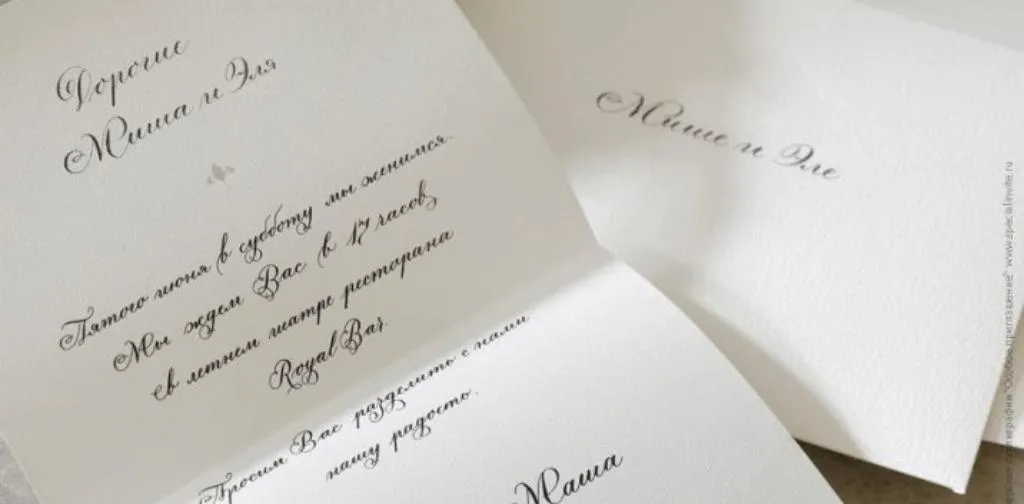 Дорогие
Миша и Эля
Пятого июня в субботу мы женимся.
Мы ждем Вас в 17 часов
в летнем шатре ресторана
Royal Bar.
Просим Вас разделить с нами
нашу радость.
Маша
Мише и Эле
каллиграфии "Особое приглашение" www.specialinvite.ru